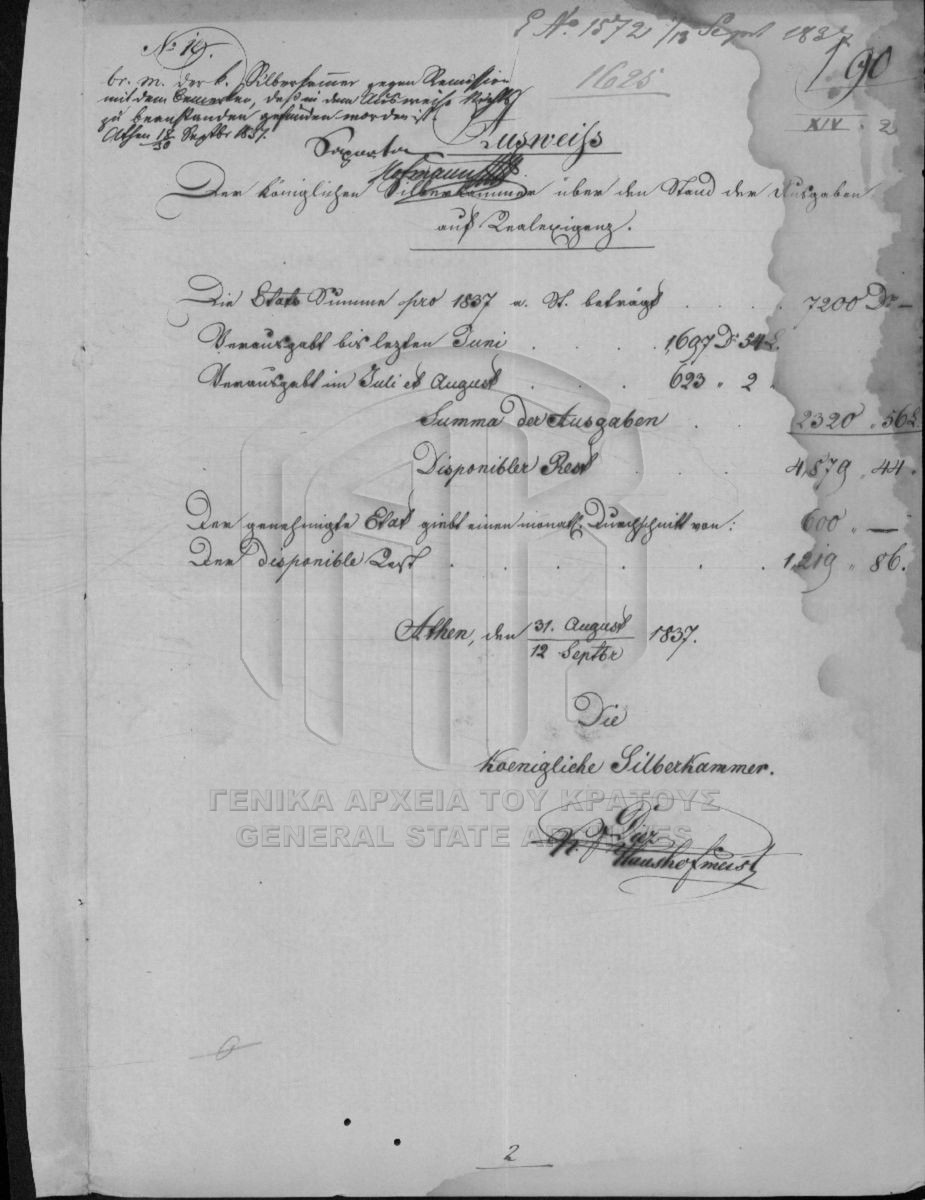 E No 1572 /13 Sept 1837
No 19.
1625
190
XIV. 2
br. m. der k. Silberkammer gegen Remission
mit dem Bemerken, daß in dem Ausweise Nichts
zu beanstanden gefunden worden ist.
Athen 18/30 Septbr 1837.
Hofmann
Ausweiß
Der Königlichen Silberkammer über den Stand der Ausgaben
auf Realexigenz.
Die Etats Summe pro 1837 a. St. beträgt . . . . 7200 Dr —
Verausgabt bis lezten Juni . . . . 1,697 Dr 54 L.
Verausgabt im Juli et August . . . 623 " 2 "
Summa der Ausgaben . . 2320 " 56 L.
Disponibler Rest . . . . 4,879 " 44 "
Der genehmigte Etat giebt einen monatl. Durchschnitt von: 600 " —
Der disponible Rest . . . . . . 1,219 " 86.
Athen, den 31. August / 12 Septbr 1837.
Die
Koenigliche Silberkammer.
ΓΕΝΙΚΑ ΑΡΧΕΙΑ ΤΟΥ ΚΡΑΤΟΥΣ
GENERAL STATE ARCHIVES
Diez
Haushofmeist
2